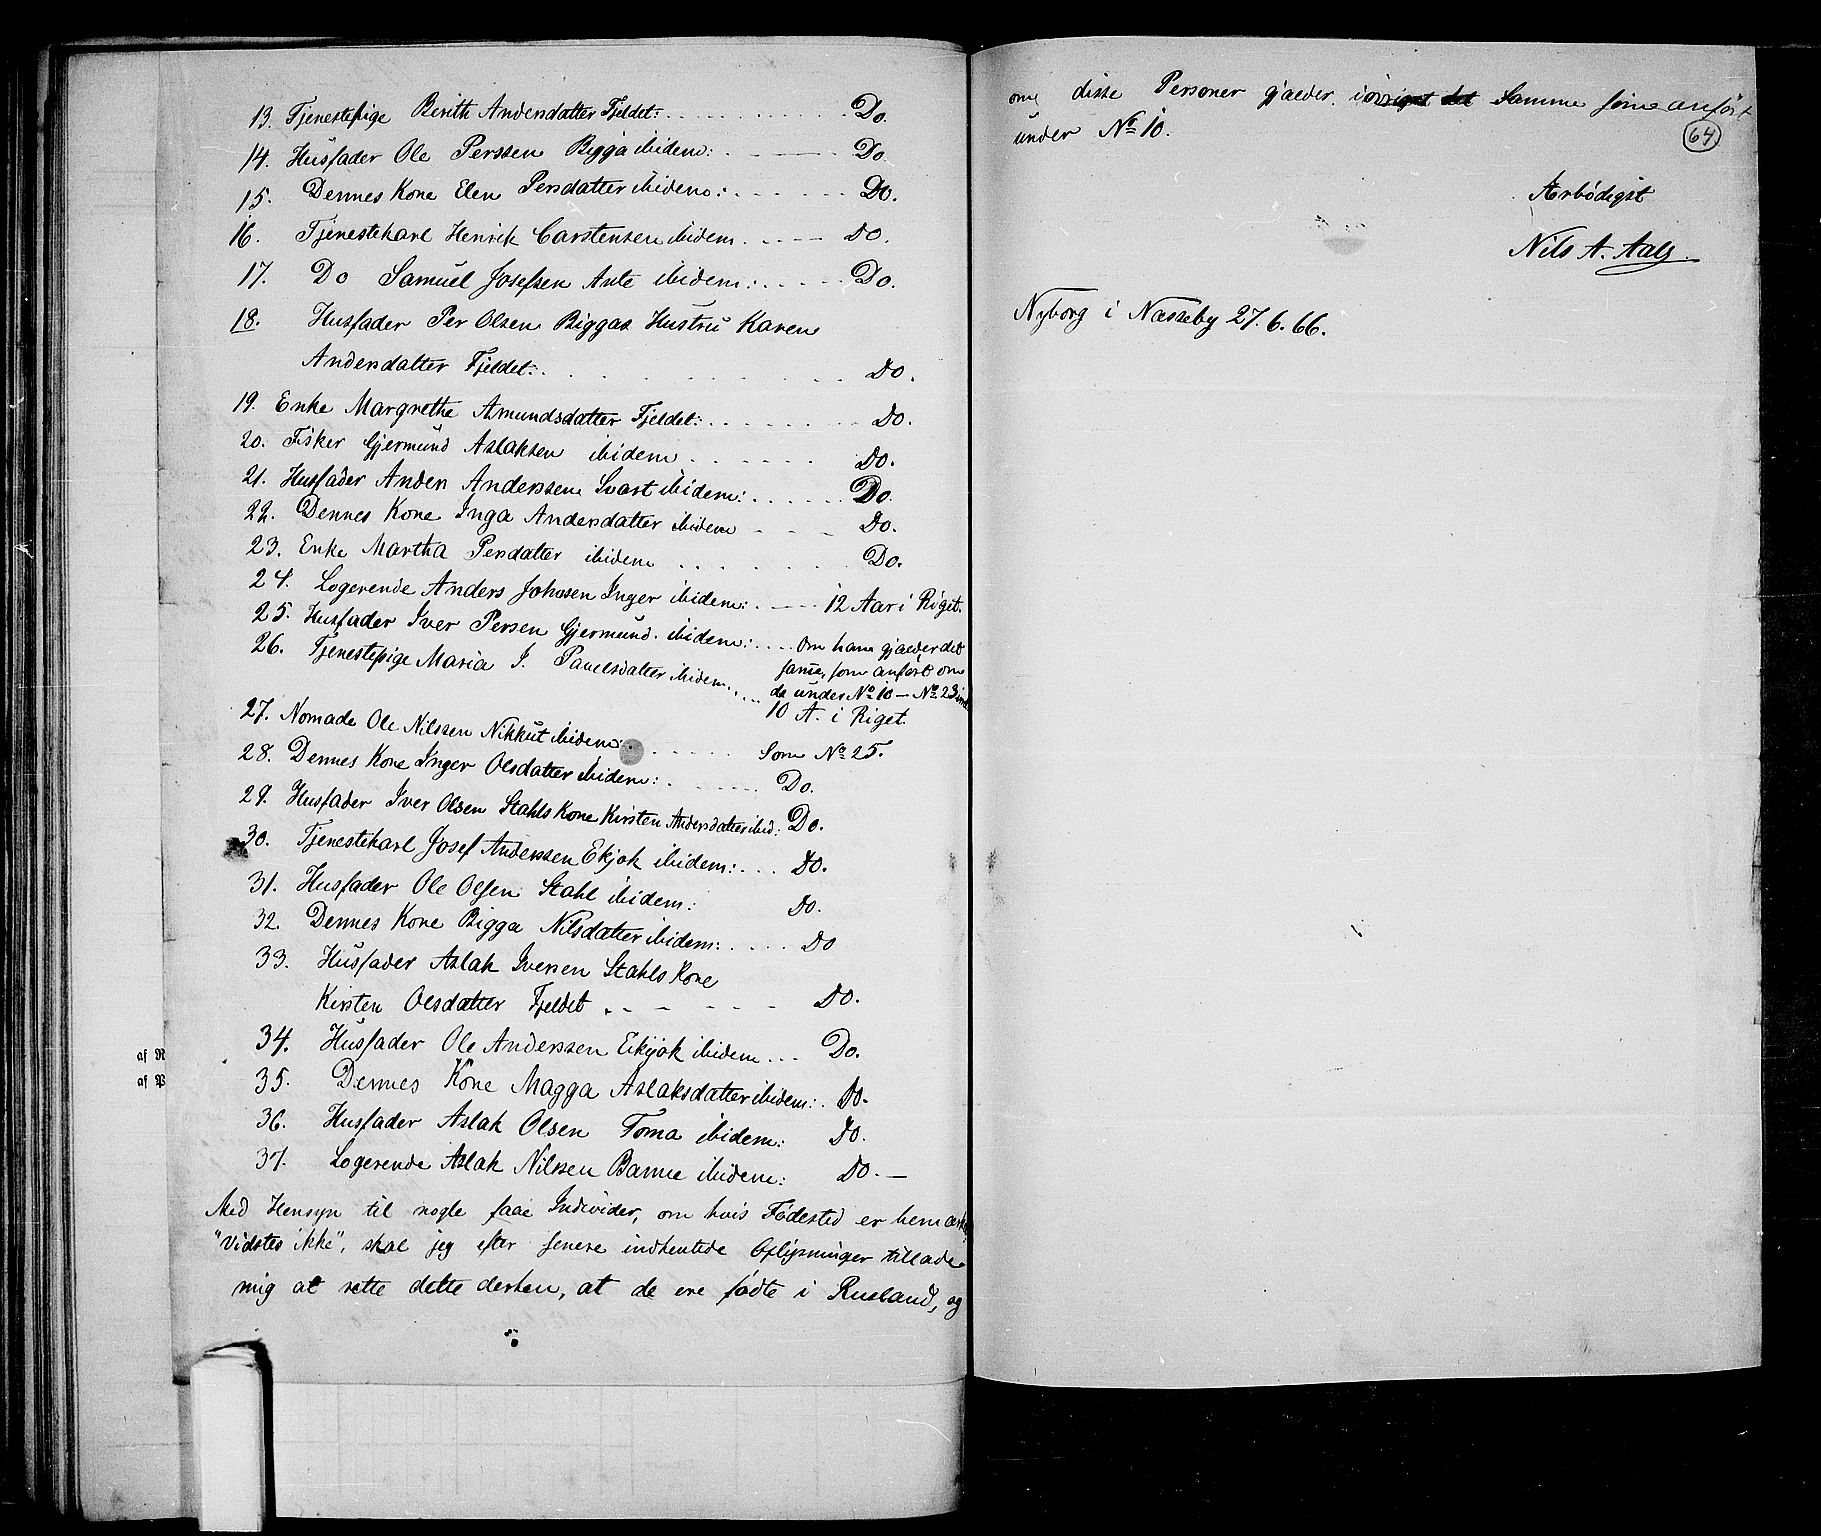 13. Tjenestepige Berith Andersdatter Fjeldet: Do.
14. Husfader Ole Perssen Bigga ibidem: Do.
15. Dennes Kone Elen Persdatter ibidem: Do.
16. Tjenestekarl Henrik Carstensen ibidem Do.
17. Do Samuel Josefsen Ante ibidem: Do.
18. Husfader Per Olsen Biggas Hustru Karen
Andersdatter Fjeldet: Do.
19. Enke Margrethe Amundsdatter Fjeldet: Do.
20. Fisker Gjermund Aslaksen ibidem Do.
21. Husfader Anders Anderssen Svart ibidem: Do.
22. Dennes Kone Inga Andersdatter ibidem Do.
23. Enke Martha Persdatter ibidem Do.
24. Logerende Anders Johnsen Inger ibidem: 12 Aar i Riget.
25. Husfader Iver Persen Gjermund. ibidem: Om ham gjælder det
samme, som anført om
de under No 10 – No 23
26. Tjenestepige Maria J. Pauelsdatter ibidem 10 A. i Riget.
27. Nomade Ole Nilssen Nikkut ibidem: Som No 25.
28. Dennes Kone Inger Olsdatter ibidem: Do.
29. Husfader Iver Olsen Stahls Kone Kirsten Andersdatter ibid: Do.
30. Tjenestekarl Josef Anderssen Ekjok ibidem: Do.
31. Husfader Ole Olsen Stahl ibidem: Do.
32. Dennes Kone Bigga Nilsdatter ibidem: Do
33. Husfader Aslak Iversen Stahls Kone
Kirsten Olsdatter Fjeldet Do.
34. Husfader Ole Anderssen Eikjok ibidem Do.
35. Dennes Kone Magga Aslaksdatter ibidem: Do.
36. Husfader Aslak Olsen Toma ibidem: Do.
37. Logerende Aslak Nilssen Banne ibidem: Do. —
Med Hensyn til nogle faae Individer, om hvis Fødested er bemærket
"Vidstes ikke", skal jeg efter senere indhentede Oplysninger tillade
mig at rette dette derhen, at de ere fødte i Rusland, og
af N
af P
om disse Personer gjælder iøvrigt det Samme som anført
under No 10.
64
Ærbødigst
Nils A. Aals
Nyborg i Næsseby 27.6.66.